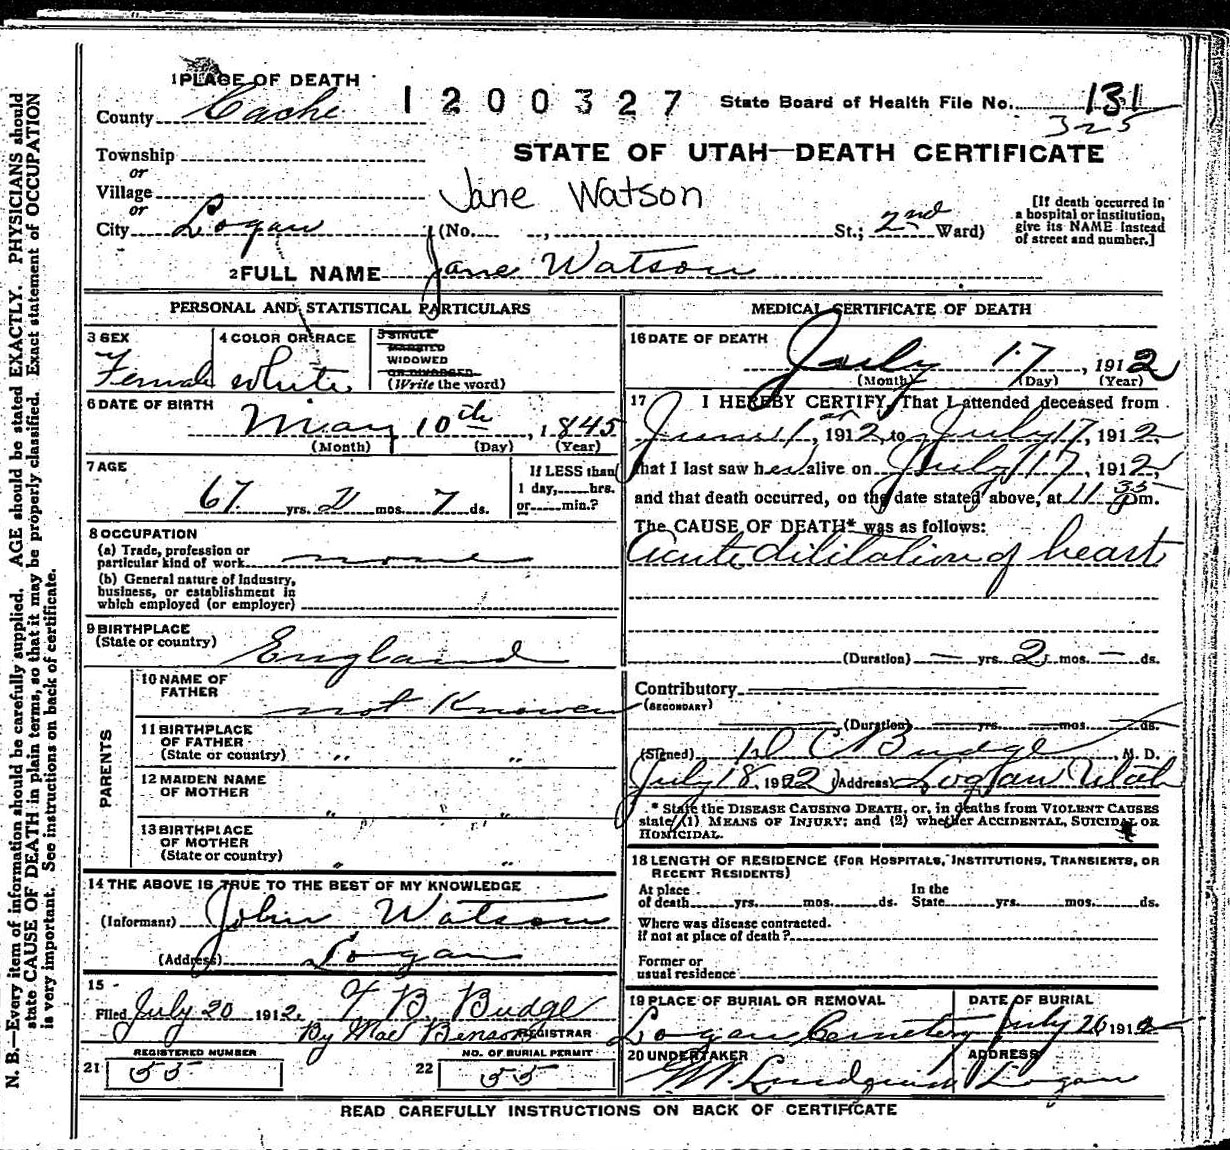 1 PLACE OF DEATH
County Cache
1200327
State Board of Health File No. 131
325
Township
or
Village
or
City Logan
STATE OF UTAH—DEATH CERTIFICATE
Jane Watson
(No. , St.; 2nd Ward)
[If death occurred in
a hospital or institution,
give its NAME instead
of street and number.]
2 FULL NAME Jane Watson
PERSONAL AND STATISTICAL PARTICULARS
3 SEX
Female
4 COLOR OR RACE
White
5 SINGLE
MARRIED
WIDOWED
OR DIVORCED
(Write the word)
6 DATE OF BIRTH
May 10th, 1845
(Month) (Day) (Year)
7 AGE
67 yrs. 2 mos. 7 ds.
If LESS than
1 day, hrs.
or min.?
8 OCCUPATION
(a) Trade, profession or
particular kind of work none
(b) General nature of Industry,
business, or establishment in
which employed (or employer)
9 BIRTHPLACE
(State or country) England
PARENTS
10 NAME OF
FATHER not Known
11 BIRTHPLACE
OF FATHER
(State or country) " "
12 MAIDEN NAME
OF MOTHER " " " "
13 BIRTHPLACE
OF MOTHER
(State or country) " "
14 THE ABOVE IS TRUE TO THE BEST OF MY KNOWLEDGE
(Informant) John Watson
(Address) Logan
15
Filed July 20 1912. T. B. Budge
By Mae Benson REGISTRAR
REGISTERED NUMBER
21 55
NO. OF BURIAL PERMIT
22 55
MEDICAL CERTIFICATE OF DEATH
16 DATE OF DEATH
July 17, 1912
(Month) (Day) (Year)
17 I HEREBY CERTIFY, That I attended deceased from
June 1st, 1912, to July 17, 1912,
that I last saw her alive on July 17, 1912,
and that death occurred, on the date stated above, at 11 35 pm.
The CAUSE OF DEATH* was as follows:
Acute dilitation of heart
(Duration) — yrs. 2 mos. — ds.
Contributory
(SECONDARY)
(Duration) yrs. mos. ds.
(Signed) D C Budge M. D.
July 18, 1912 (Address) Logan Utah
* State the DISEASE CAUSING DEATH, or, in deaths from VIOLENT CAUSES
state (1) MEANS OF INJURY; and (2) whether ACCIDENTAL, SUICIDAL OR
HOMICIDAL.
18 LENGTH OF RESIDENCE (FOR HOSPITALS, INSTITUTIONS, TRANSIENTS, OR
RECENT RESIDENTS)
At place
of death yrs. mos. ds.
In the
State yrs. mos. ds.
Where was disease contracted.
If not at place of death?
Former or
usual residence
19 PLACE OF BURIAL OR REMOVAL
Logan Cemetery
DATE OF BURIAL
July 20 1912
20 UNDERTAKER
M. Lundquist
ADDRESS
Logan
READ CAREFULLY INSTRUCTIONS ON BACK OF CERTIFICATE
N. B.—Every item of information should be carefully supplied. AGE should be stated EXACTLY. PHYSICIANS should
state CAUSE OF DEATH in plain terms, so that it may be properly classified. Exact statement of OCCUPATION
is very important. See instructions on back of certificate.